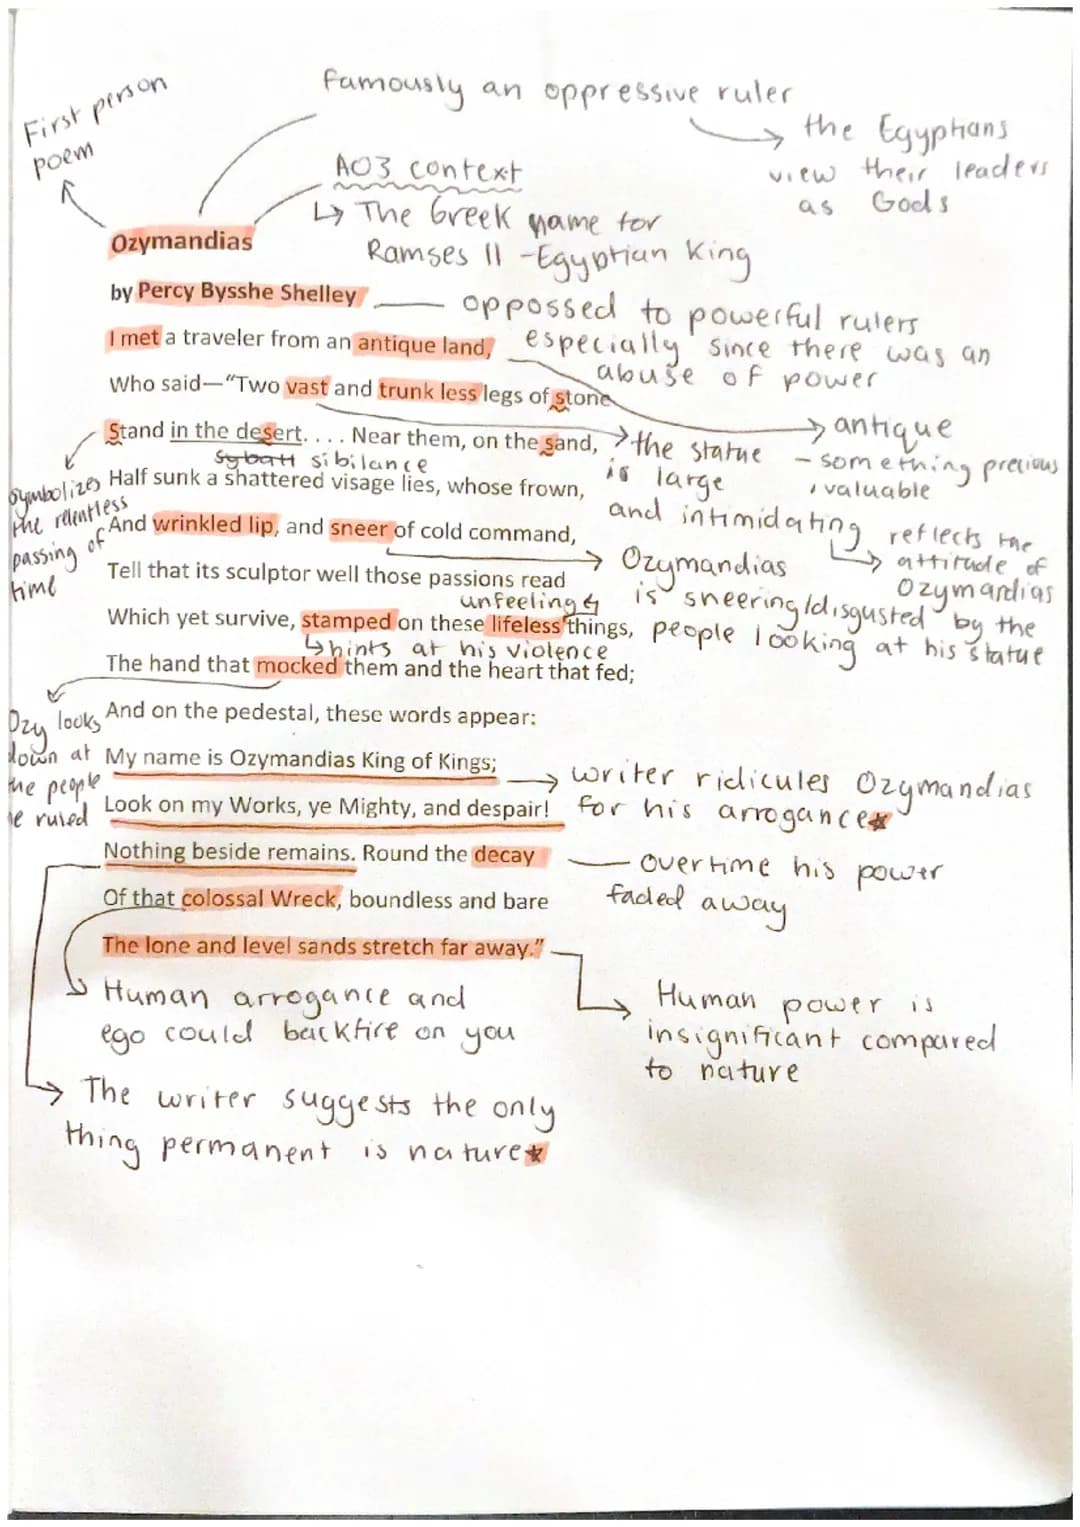 First person
poem
famously an oppressive ruler
the Egyptians
view their leaders
as Gods
AO3 context
↳ The Greek name for
Ramses II - Egyptian King
Ozymandias
by Percy Bysshe Shelley
oppossed to powerful rulers
especially since there was an
abuse of power
I met a traveler from an antique land,
Who said—“Two vast and trunk less legs of stone
antique
- something precious
, valuable
Stand in the desert. . . . Near them, on the sand,
sibilance
the statue
is large
and intimidating
reflects the
attitude of
Ozymandias
symbolizes
the relentless
passing of
time
Half sunk a shattered visage lies, whose frown,
And wrinkled lip, and sneer of cold command,
Ozymandias
is sneering/disgusted by the
people looking at his statue
Tell that its sculptor well those passions read
unfeeling
Which yet survive, stamped on these lifeless things,
↳ hints at his violence
The hand that mocked them and the heart that fed;
Ozy looks
down at
the people
he ruled
And on the pedestal, these words appear:
My name is Ozymandias King of Kings;
Look on my Works, ye Mighty, and despair!
writer ridicules Ozymandias
for his arrogance★
Nothing beside remains. Round the decay
overtime his power
faded away
Of that colossal Wreck, boundless and bare
The lone and level sands stretch far away.”
Human arrogance and
ego could backfire on you
Human power is
insignificant compared
to nature
The writer suggests the only
thing permanent is nature★